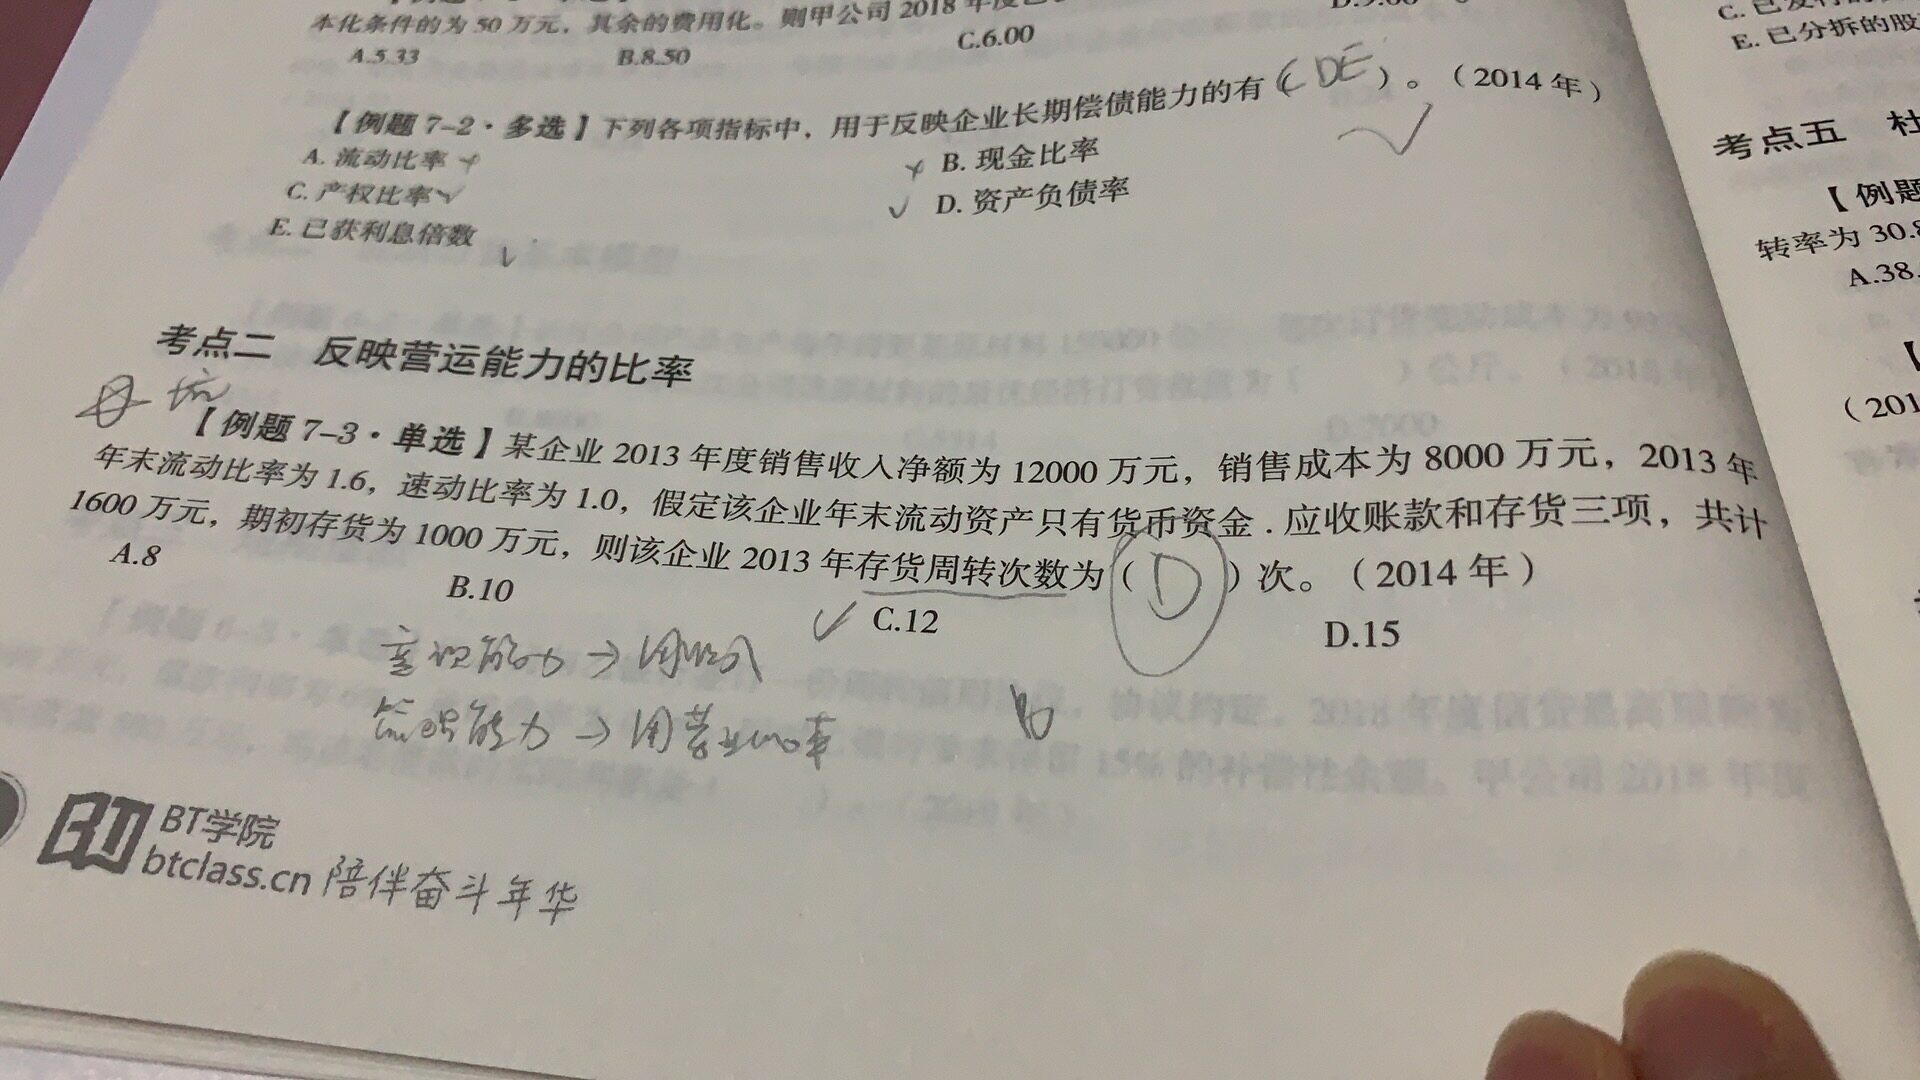 本化条件的为 50 万元，其余的费用化。则甲公司 2018 年度
A.5.33 B.8.50 C.6.00
【例题 7-2·多选】下列各项指标中，用于反映企业长期偿债能力的有（CDE）。（2014 年）
A. 流动比率 B. 现金比率
C. 产权比率 D. 资产负债率
E. 已获利息倍数
考点二 反映营运能力的比率
坑
【例题 7-3·单选】某企业 2013 年度销售收入净额为 12000 万元，销售成本为 8000 万元，2013 年
年末流动比率为 1.6，速动比率为 1.0，假定该企业年末流动资产只有货币资金．应收账款和存货三项，共计
1600 万元，期初存货为 1000 万元，则该企业 2013 年存货周转次数为（D）次。（2014 年）
A.8 B.10 C.12 D.15
能力→用收入
能力→用营业
BT学院
btclass.cn 陪伴奋斗年华
C. 已发行的
E. 已分拆的股
考点五 杜
【例题
转率为 30.8
A.38.
【
（201